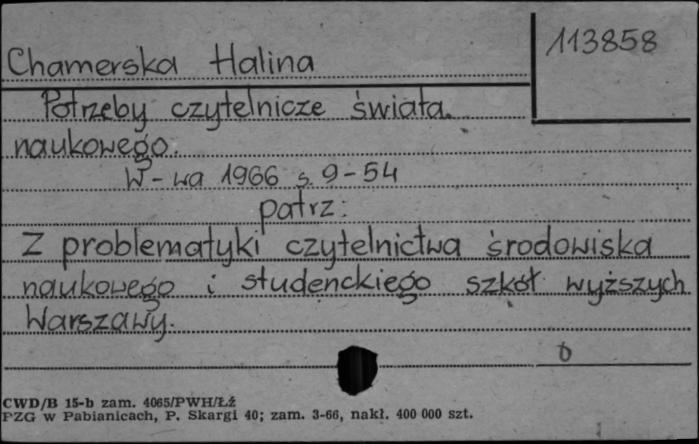 113858
Chamerska Halina
Potrzeby czytelnicze świata
naukowego.
W-wa 1966 s. 9-54
patrz:
Z problematyki czytelnictwa środowiska
naukowego i studenckiego szkół wyższych
Warszawy.
CWD/B 15-b zam. 4065/PWH/ŁŹ
PZG w Pabianicach, P. Skargi 40; zam. 3-66, nakł. 400 000 szt.